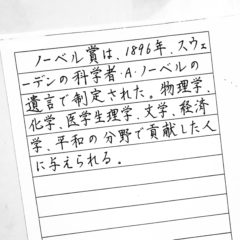 ノーベル賞は、1896年、スウェ
ーデンの科学者・A・ノーベルの
遺言で制定された。物理学、
化学、医学生理学、文学、経済
学、平和の分野で貢献した人
に与えられる。